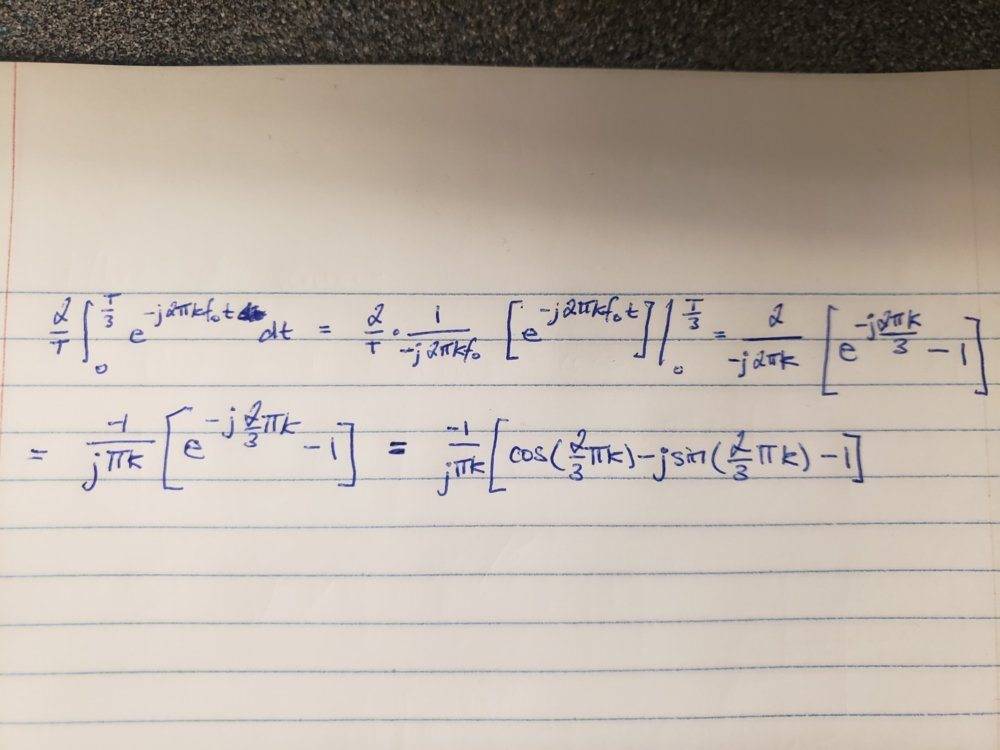 $\frac{2}{T} \int_0^{\frac{T}{3}} e^{-j2\pi k f_0 t} dt = \frac{2}{T} \cdot \frac{1}{-j2\pi k f_0} \left[ e^{-j2\pi k f_0 t} \right] \Big|_0^{\frac{T}{3}} = \frac{2}{-j2\pi k} \left[ e^{-\frac{j2\pi k}{3}} - 1 \right]$
$= \frac{-1}{j\pi k} \left[ e^{-j\frac{2}{3}\pi k} - 1 \right] = \frac{-1}{j\pi k} \left[ \cos(\frac{2}{3}\pi k) - j\sin(\frac{2}{3}\pi k) - 1 \right]$